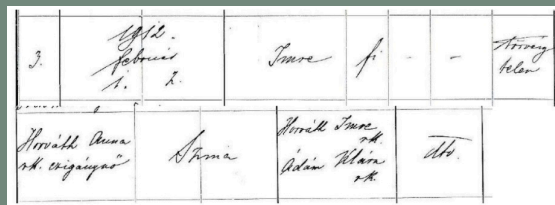 3.
1912.
február
1. 2.
Imre
fi
-
-
törvény
telen
Horváth Anna
rk. czigánynő
Horváth Imre
rk.
Ádám Klára
rk.
dto.